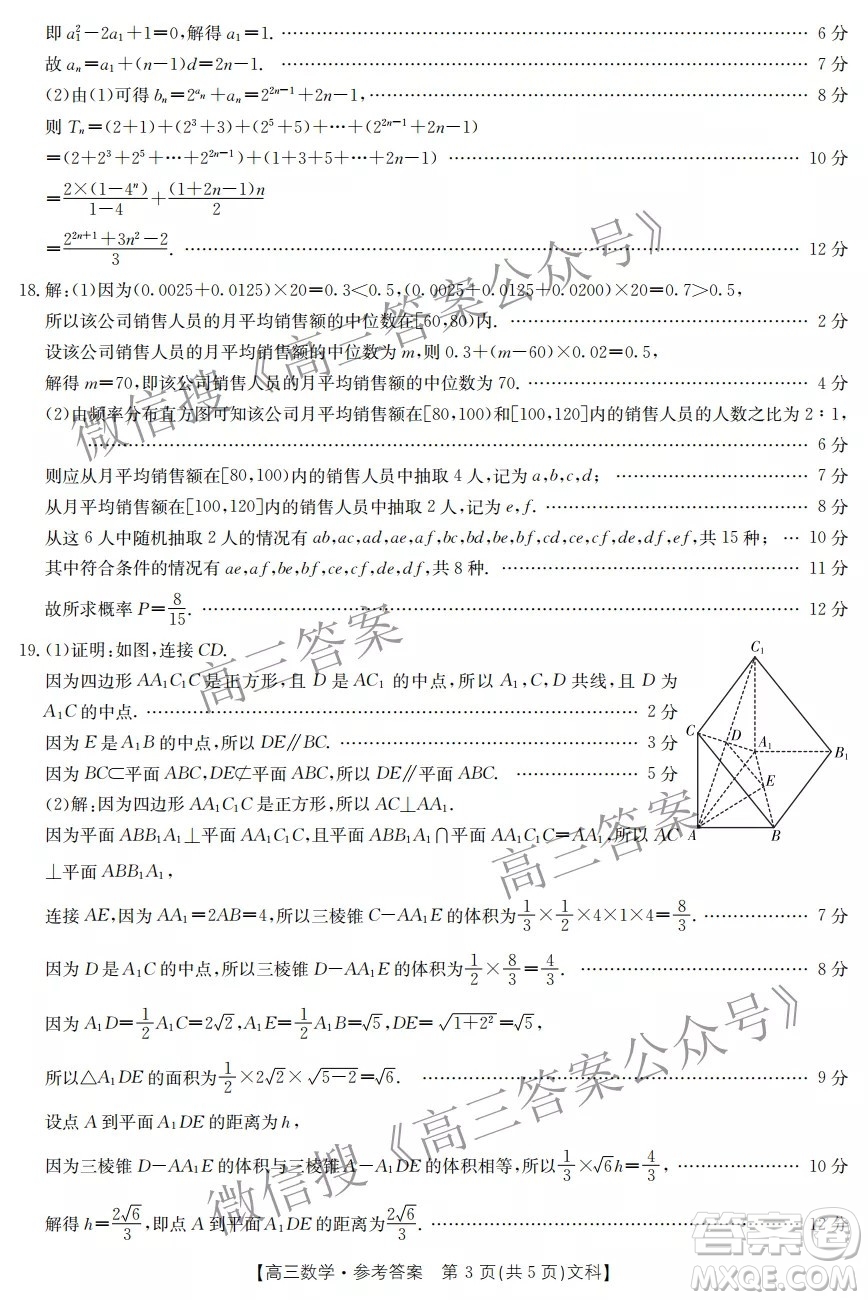 即 a₁²−2a₁+1=0,解得 a₁=1. …… 6 分
故 aₙ=a₁+(n−1)d=2n−1. …… 7 分
(2)由(1)可得 bₙ=2^{aₙ}+aₙ=2^{2n−1}+2n−1, …… 8 分
则 Tₙ=(2+1)+(2³+3)+(2⁵+5)+⋯+(2^{2n−1}+2n−1)
=(2+2³+2⁵+⋯+2^{2n−1})+(1+3+5+⋯+2n−1) …… 10 分
=\frac{2×(1−4ⁿ)}{1−4}+\frac{(1+2n−1)n}{2}
=\frac{2^{2n+1}+3n²−2}{3}. …… 12 分
18.解:(1)因为(0.0025+0.0125)×20=0.3<0.5,(0.0025+0.0125+0.0200)×20=0.7>0.5,
所以该公司销售人员的月平均销售额的中位数在[60,80)内. …… 2 分
设该公司销售人员的月平均销售额的中位数为 m,则 0.3+(m−60)×0.02=0.5,
解得 m=70,即该公司销售人员的月平均销售额的中位数为 70. …… 4 分
(2)由频率分布直方图可知该公司月平均销售额在[80,100)和[100,120]内的销售人员的人数之比为 2∶1,
…… 6 分
则应从月平均销售额在[80,100)内的销售人员中抽取 4 人,记为 a,b,c,d; …… 7 分
从月平均销售额在[100,120]内的销售人员中抽取 2 人,记为 e,f. …… 8 分
从这 6 人中随机抽取 2 人的情况有 ab,ac,ad,ae,af,bc,bd,be,bf,cd,ce,cf,de,df,ef,共 15 种; … 10 分
其中符合条件的情况有 ae,af,be,bf,ce,cf,de,df,共 8 种. …… 11 分
故所求概率 P=\frac{8}{15}. …… 12 分
19.(1)证明:如图,连接 CD.
因为四边形 AA₁C₁C 是正方形,且 D 是 AC₁ 的中点,所以 A₁,C,D 共线,且 D 为
A₁C 的中点. …… 2 分
因为 E 是 A₁B 的中点,所以 DE∥BC. …… 3 分
因为 BC⊂平面 ABC,DE⊄平面 ABC,所以 DE∥平面 ABC. …… 5 分
C₁
C
D
A₁
B₁
E
A
B
(2)解:因为四边形 AA₁C₁C 是正方形,所以 AC⊥AA₁.
因为平面 ABB₁A₁⊥平面 AA₁C₁C,且平面 ABB₁A₁∩平面 AA₁C₁C=AA₁,所以 AC
⊥平面 ABB₁A₁,
连接 AE,因为 AA₁=2AB=4,所以三棱锥 C−AA₁E 的体积为\frac{1}{3}×\frac{1}{2}×4×1×4=\frac{8}{3}. …… 7 分
因为 D 是 A₁C 的中点,所以三棱锥 D−AA₁E 的体积为\frac{1}{2}×\frac{8}{3}=\frac{4}{3}. …… 8 分
因为 A₁D=\frac{1}{2}A₁C=2√2,A₁E=\frac{1}{2}A₁B=√5,DE=√(1+2²)=√5,
所以△A₁DE 的面积为\frac{1}{2}×2√2×√(5−2)=√6. …… 9 分
设点 A 到平面 A₁DE 的距离为 h,
因为三棱锥 D−AA₁E 的体积与三棱锥 A−A₁DE 的体积相等,所以\frac{1}{3}×√6h=\frac{4}{3}, …… 10 分
解得 h=\frac{2√6}{3},即点 A 到平面 A₁DE 的距离为\frac{2√6}{3}. …… 12 分
【高三数学·参考答案 第 3 页(共 5 页)文科】
微信搜《高三答案公众号》
高三答案
高三答案
微信搜《高三答案公众号》
答案圈
MXQE.COM